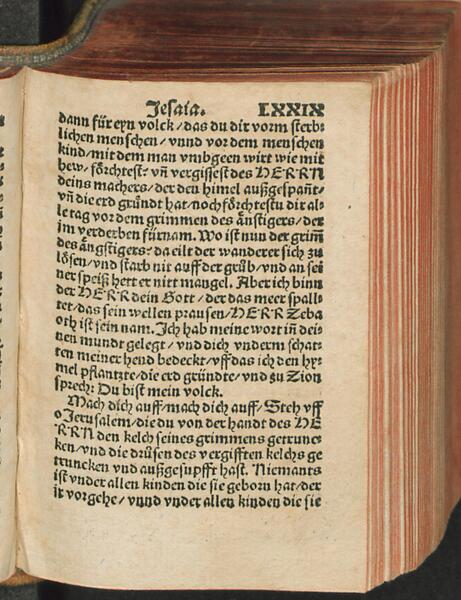 Jesaia. LXXIX
dann für eyn volck/das du dir vorm sterb⸗
lichen menschen/vnnd vor dem menschen
kind/mit dem man vmbgeen wirt wie mit
hew/förchtest: vñ vergissest des HERRN
deins machers/der den himel außgespañt/
vñ die erd gründt hat/noch förchtestu dir al⸗
le tag vor dem grimmen des ängstigers/der
im verderben fürnam. Wo ist nun der griṁ
des ängstigers: da eilt der wanderer sich zu
lösen/vnd starb nit auff der grüb/vnd an sei
ner speiß hett er nitt mangel. Aber ich binn
der HERR dein Gott/der das meer spall⸗
tet/das sein wellen prausen/HERR Zeba
oth ist sein nam. Ich hab meine wort iñ dei⸗
nen mundt gelegt/vnd dich vnderm schat⸗
ten meiner hend bedeckt/vff das ich den hy⸗
mel pflantzte/die erd gründte/vnd zu Zion
sprech: Du bist mein volck.
Mach dich auff/mach dich auff/Steh vff
o Jerusalem/die du von der handt des HE
RRN den kelch seines grimmens getrunc⸗
ken/vnd die drüsen des vergifften kelchs ge
truncken vnd außgesupfft hast. Niemants
ist vnder allen kinden die sie geborn hat/der
ir vorgehe/vnnd vnder allen kinden die sie